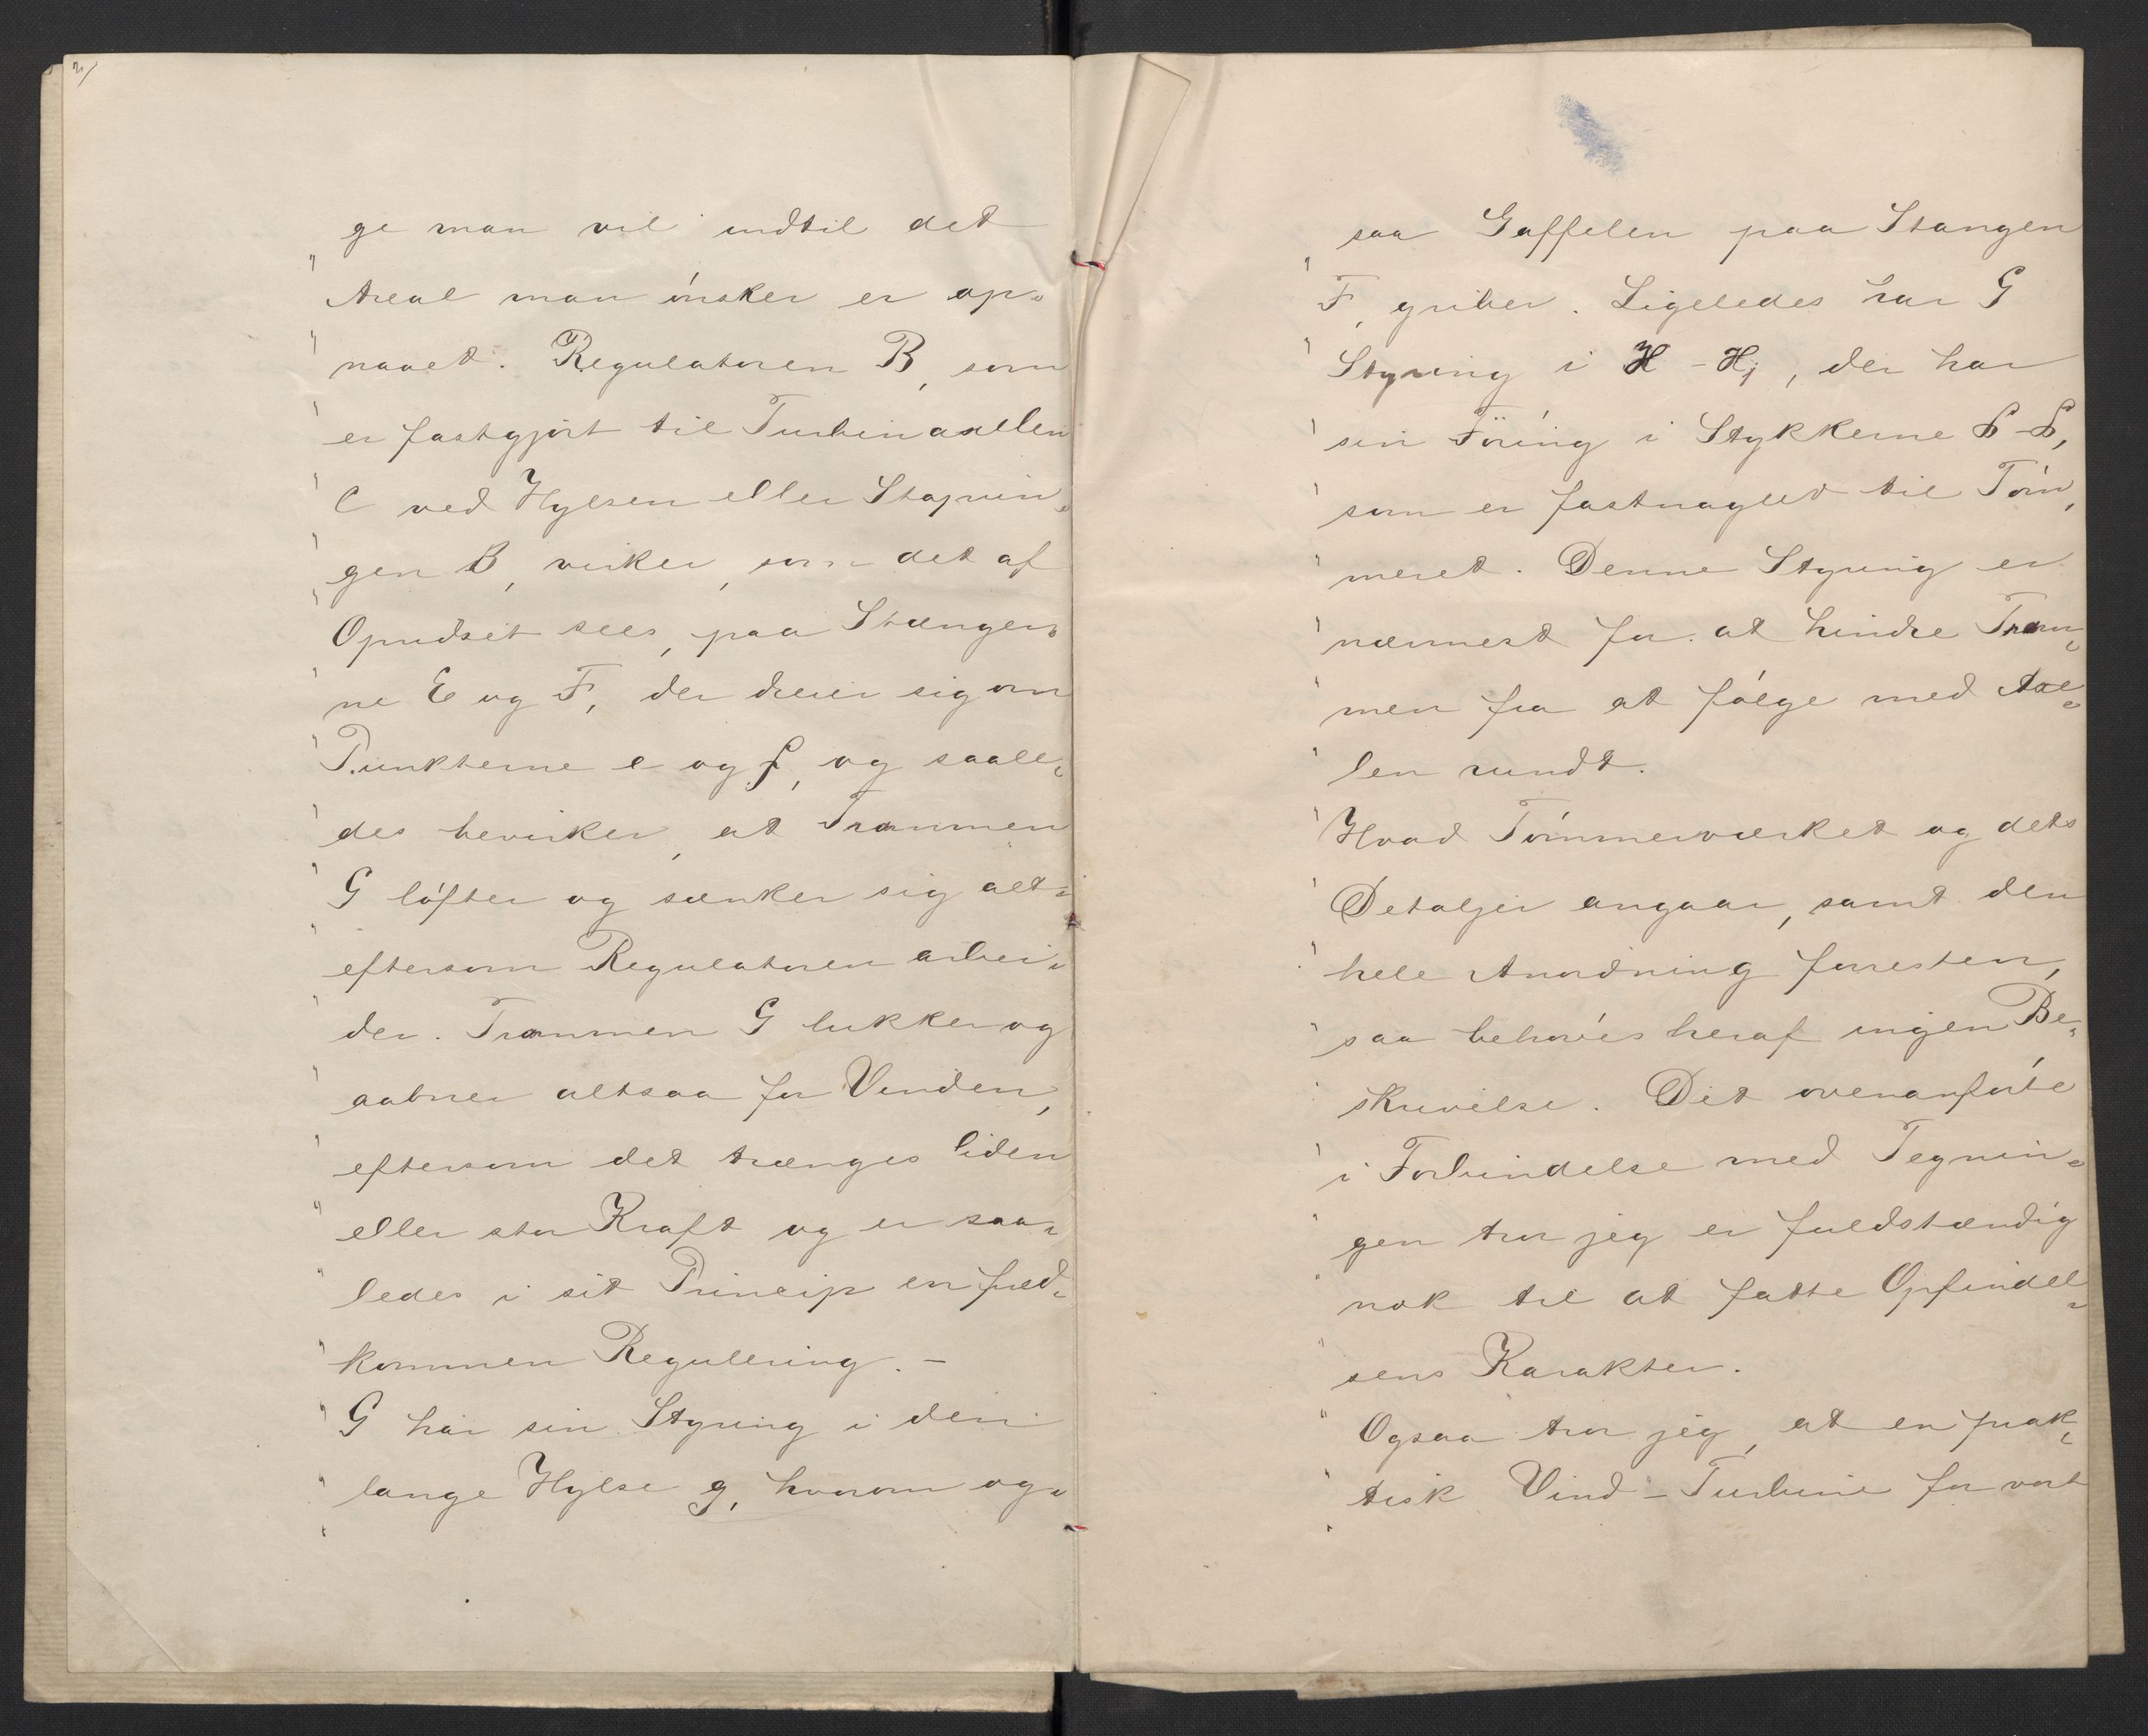 2/
ge man vil indtil det
Areal man ønsker er op-
naaet. Regulatoren B, som
er fastgjørt til Turbinaxellen
C ved Hylsen eller
gen B, virker, som det af
Opridset sees, paa Stænger-
ne E og F, der dreier sig om
Punkterne e og f, og saale-
des bevirker, at Trommen
G løfter og sænker sig alt-
eftersom Regulatoren arbei-
der. Trommen G lukker og
aabner altsaa for Vinden,
eftersom det trænges liden
eller stor Kraft og er saa-
ledes i sit Princip en fuld-
kommen Regulering. -
G har sin Styring i den
lange Hylse g, hvorom og-
saa Gaffelen paa Stangen
F, griber. Ligeledes har G
Styring i H - H, der har
sin Föring i Stykkerne
som er fastnaglet til Tøm-
meret. Denne Styring er
nærmest for at hindre Trom-
men fra at følge med Axe-
len rundt.
Hvad Tømmerværket og dets
Detaljer angaar, samt den
hele Anordning forresten,
saa behøves heraf ingen Be-
skrivelse. Det ovenanførte
i Forbindelse med Tegnin-
gen tror jeg er fuldstændig
nok til at fatte Opfindel-
sens Karakter.
Ogsaa tror jeg, at en prak-
tisk Vind-Turbine for vort